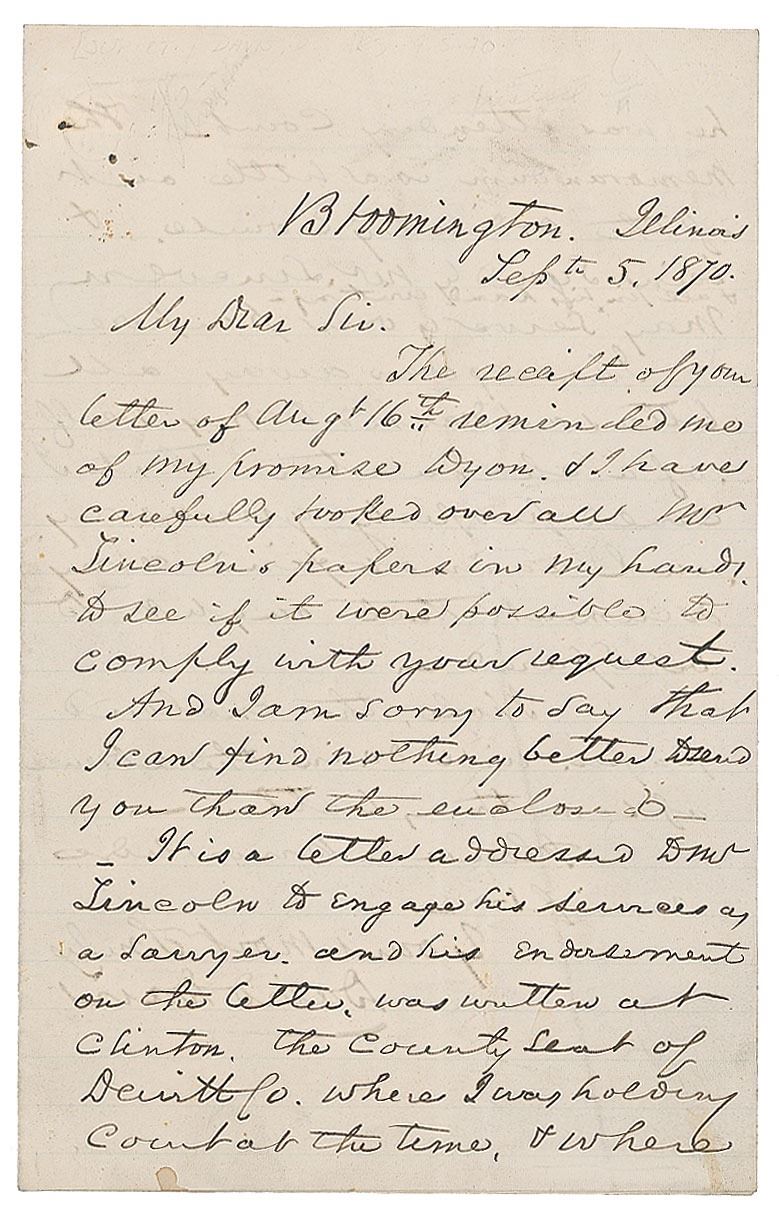 Bloomington. Illinois
Sepᵗ 5. 1870.
My Dear Sir.
The receipt of your
letter of Augᵗ 16ᵗʰ reminded me
of my promise to you. & I have
carefully looked over all Mʳ
Lincoln's papers in my hands.
to see if it were possible to
comply with your request.
And I am sorry to say that
I can find nothing better to send
you than the enclosed —
— It is a letter addressed to Mʳ
Lincoln to engage his services as
a Lawyer. and his endorsement
on the letter, was written at
Clinton. the County Seat of
Dewitt Co. where I was holding
Court at the time, & where